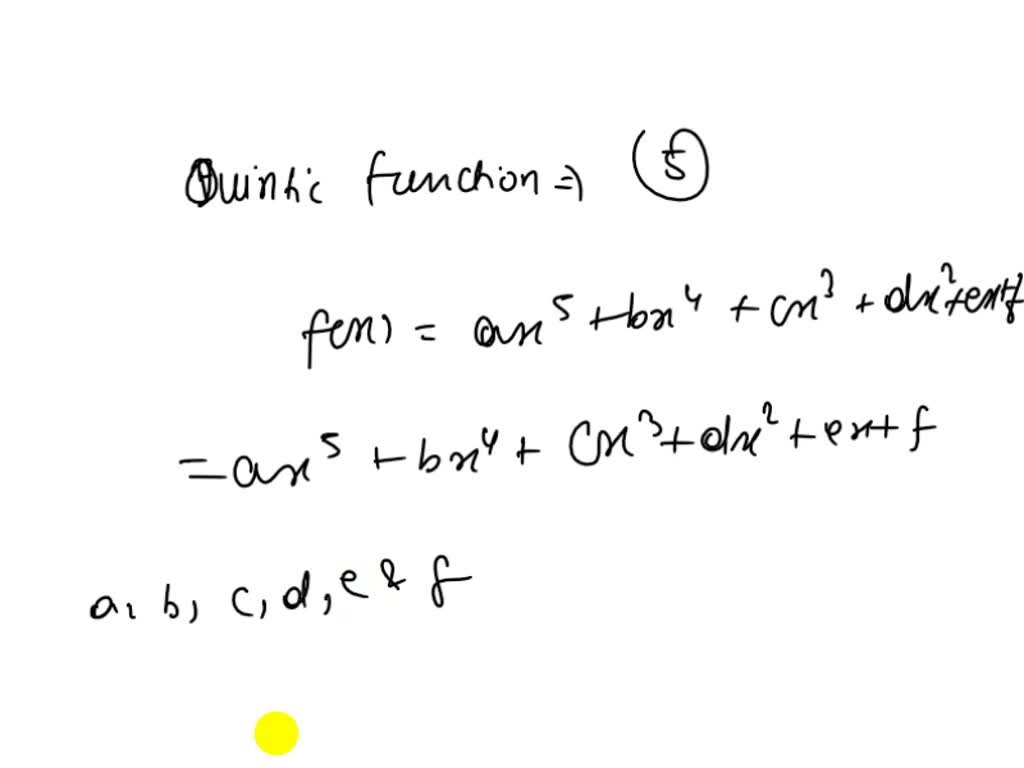 Quintic function ⇒ 5
f(x) = ax⁵ + bx⁴ + cx³ + dx² + ex + f
= ax⁵ + bx⁴ + cx³ + dx² + ex + f
a, b, c, d, e & f